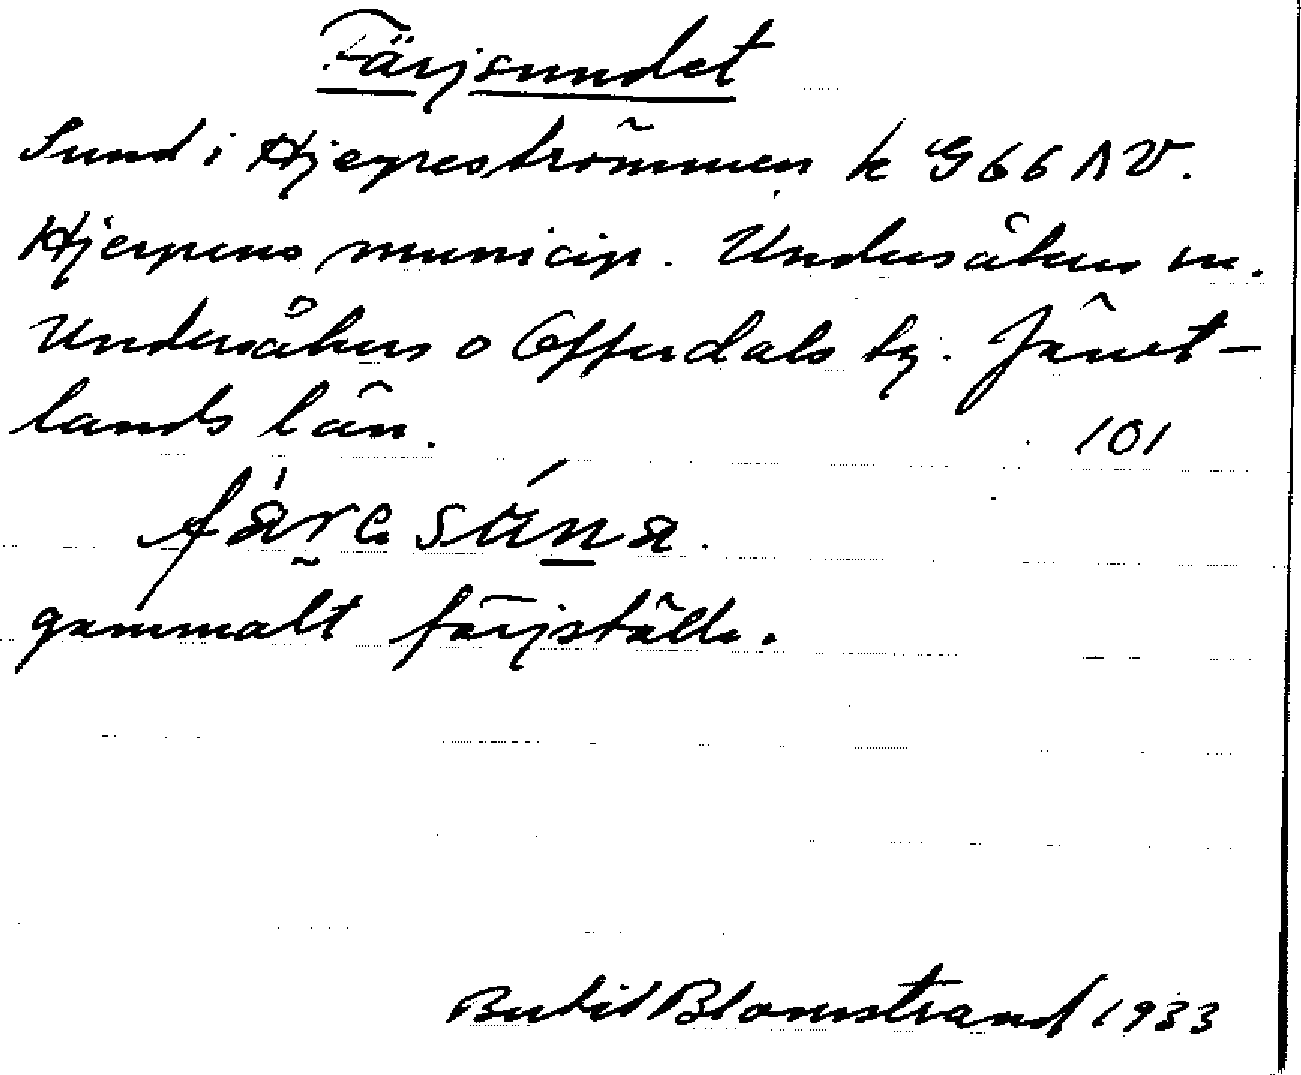 Färjsundet
Sund i Hjerpeströmmen k G 66 NV.
Hjerpens municip. Undersåkers sn.
Undersåkers o Offerdals tg. Jämt-
lands län.
101
fà̀re súna.
gammalt färjställe.
Bertil Blomstrand 1933